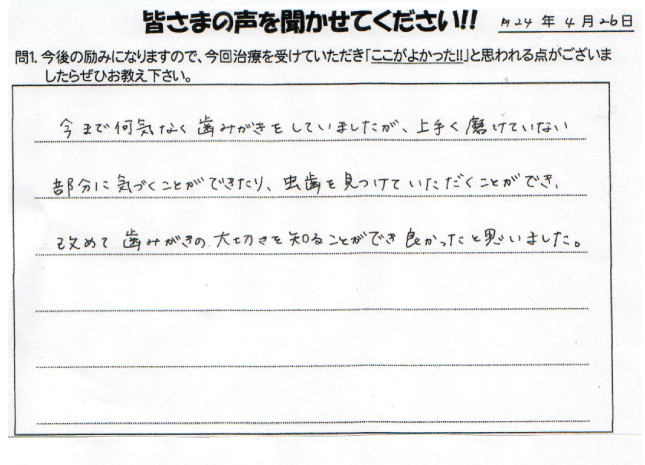 皆さまの声を聞かせてください!! H24 年 4 月 26 日
問1. 今後の励みになりますので、今回治療を受けていただき「ここがよかった!!」と思われる点がございま
したらぜひお教え下さい。
今まで何気なく歯みがきをしていましたが、上手く磨けていない
部分に気づくことができたり、虫歯を見つけていただくことができ、
改めて歯みがきの大切さを知ることができ良かったと思いました。